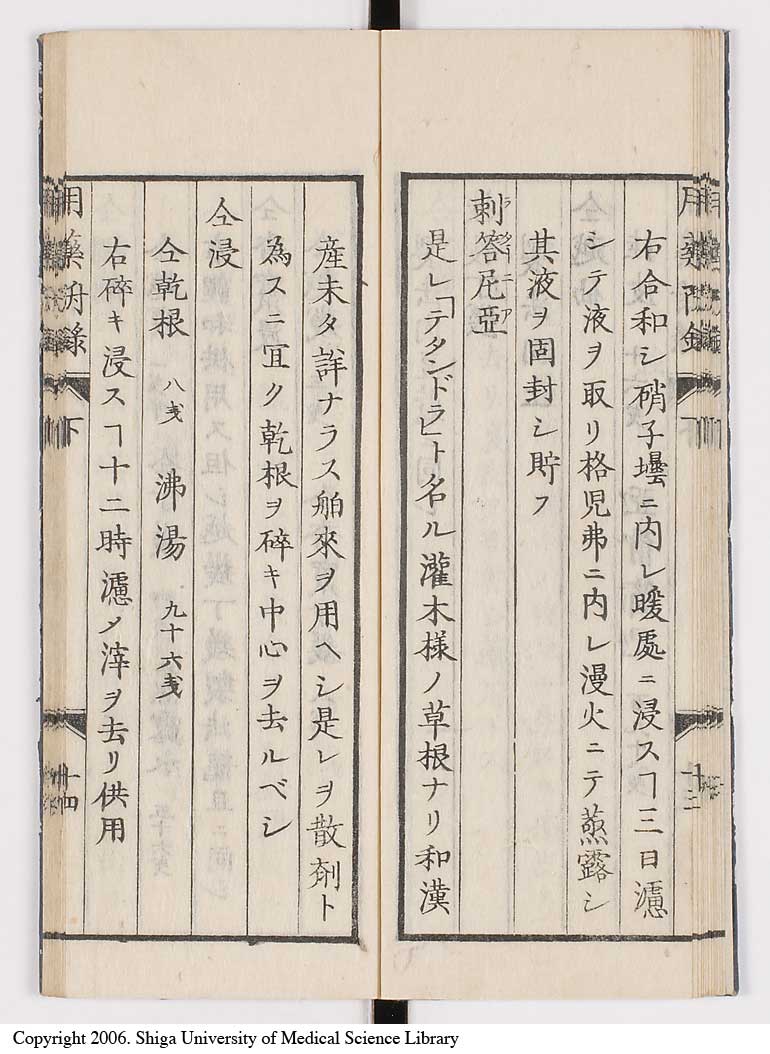 右合和シ硝子壜ニ内レ暖處ニ浸スヿ三日濾
シテ液ヲ取リ格児弗ニ内レ漫火ニテ蒸露シ
其液ヲ固封シ貯フ
剌答尼亞
ラタニア
是レ「テタンドラ」ト名ル灌木様ノ草根ナリ和漢
産未タ詳ナラス舶來ヲ用ヘシ是レヲ散剤ト
為スニ宜ク乾根ヲ碎キ中心ヲ去ルベシ
仝浸
仝乾根 八戔 沸湯 九十六戔
右碎キ浸スヿ十二時濾メ滓ヲ去リ供用
用藥附録 下 十四
Copyright 2006. Shiga University of Medical Science Library